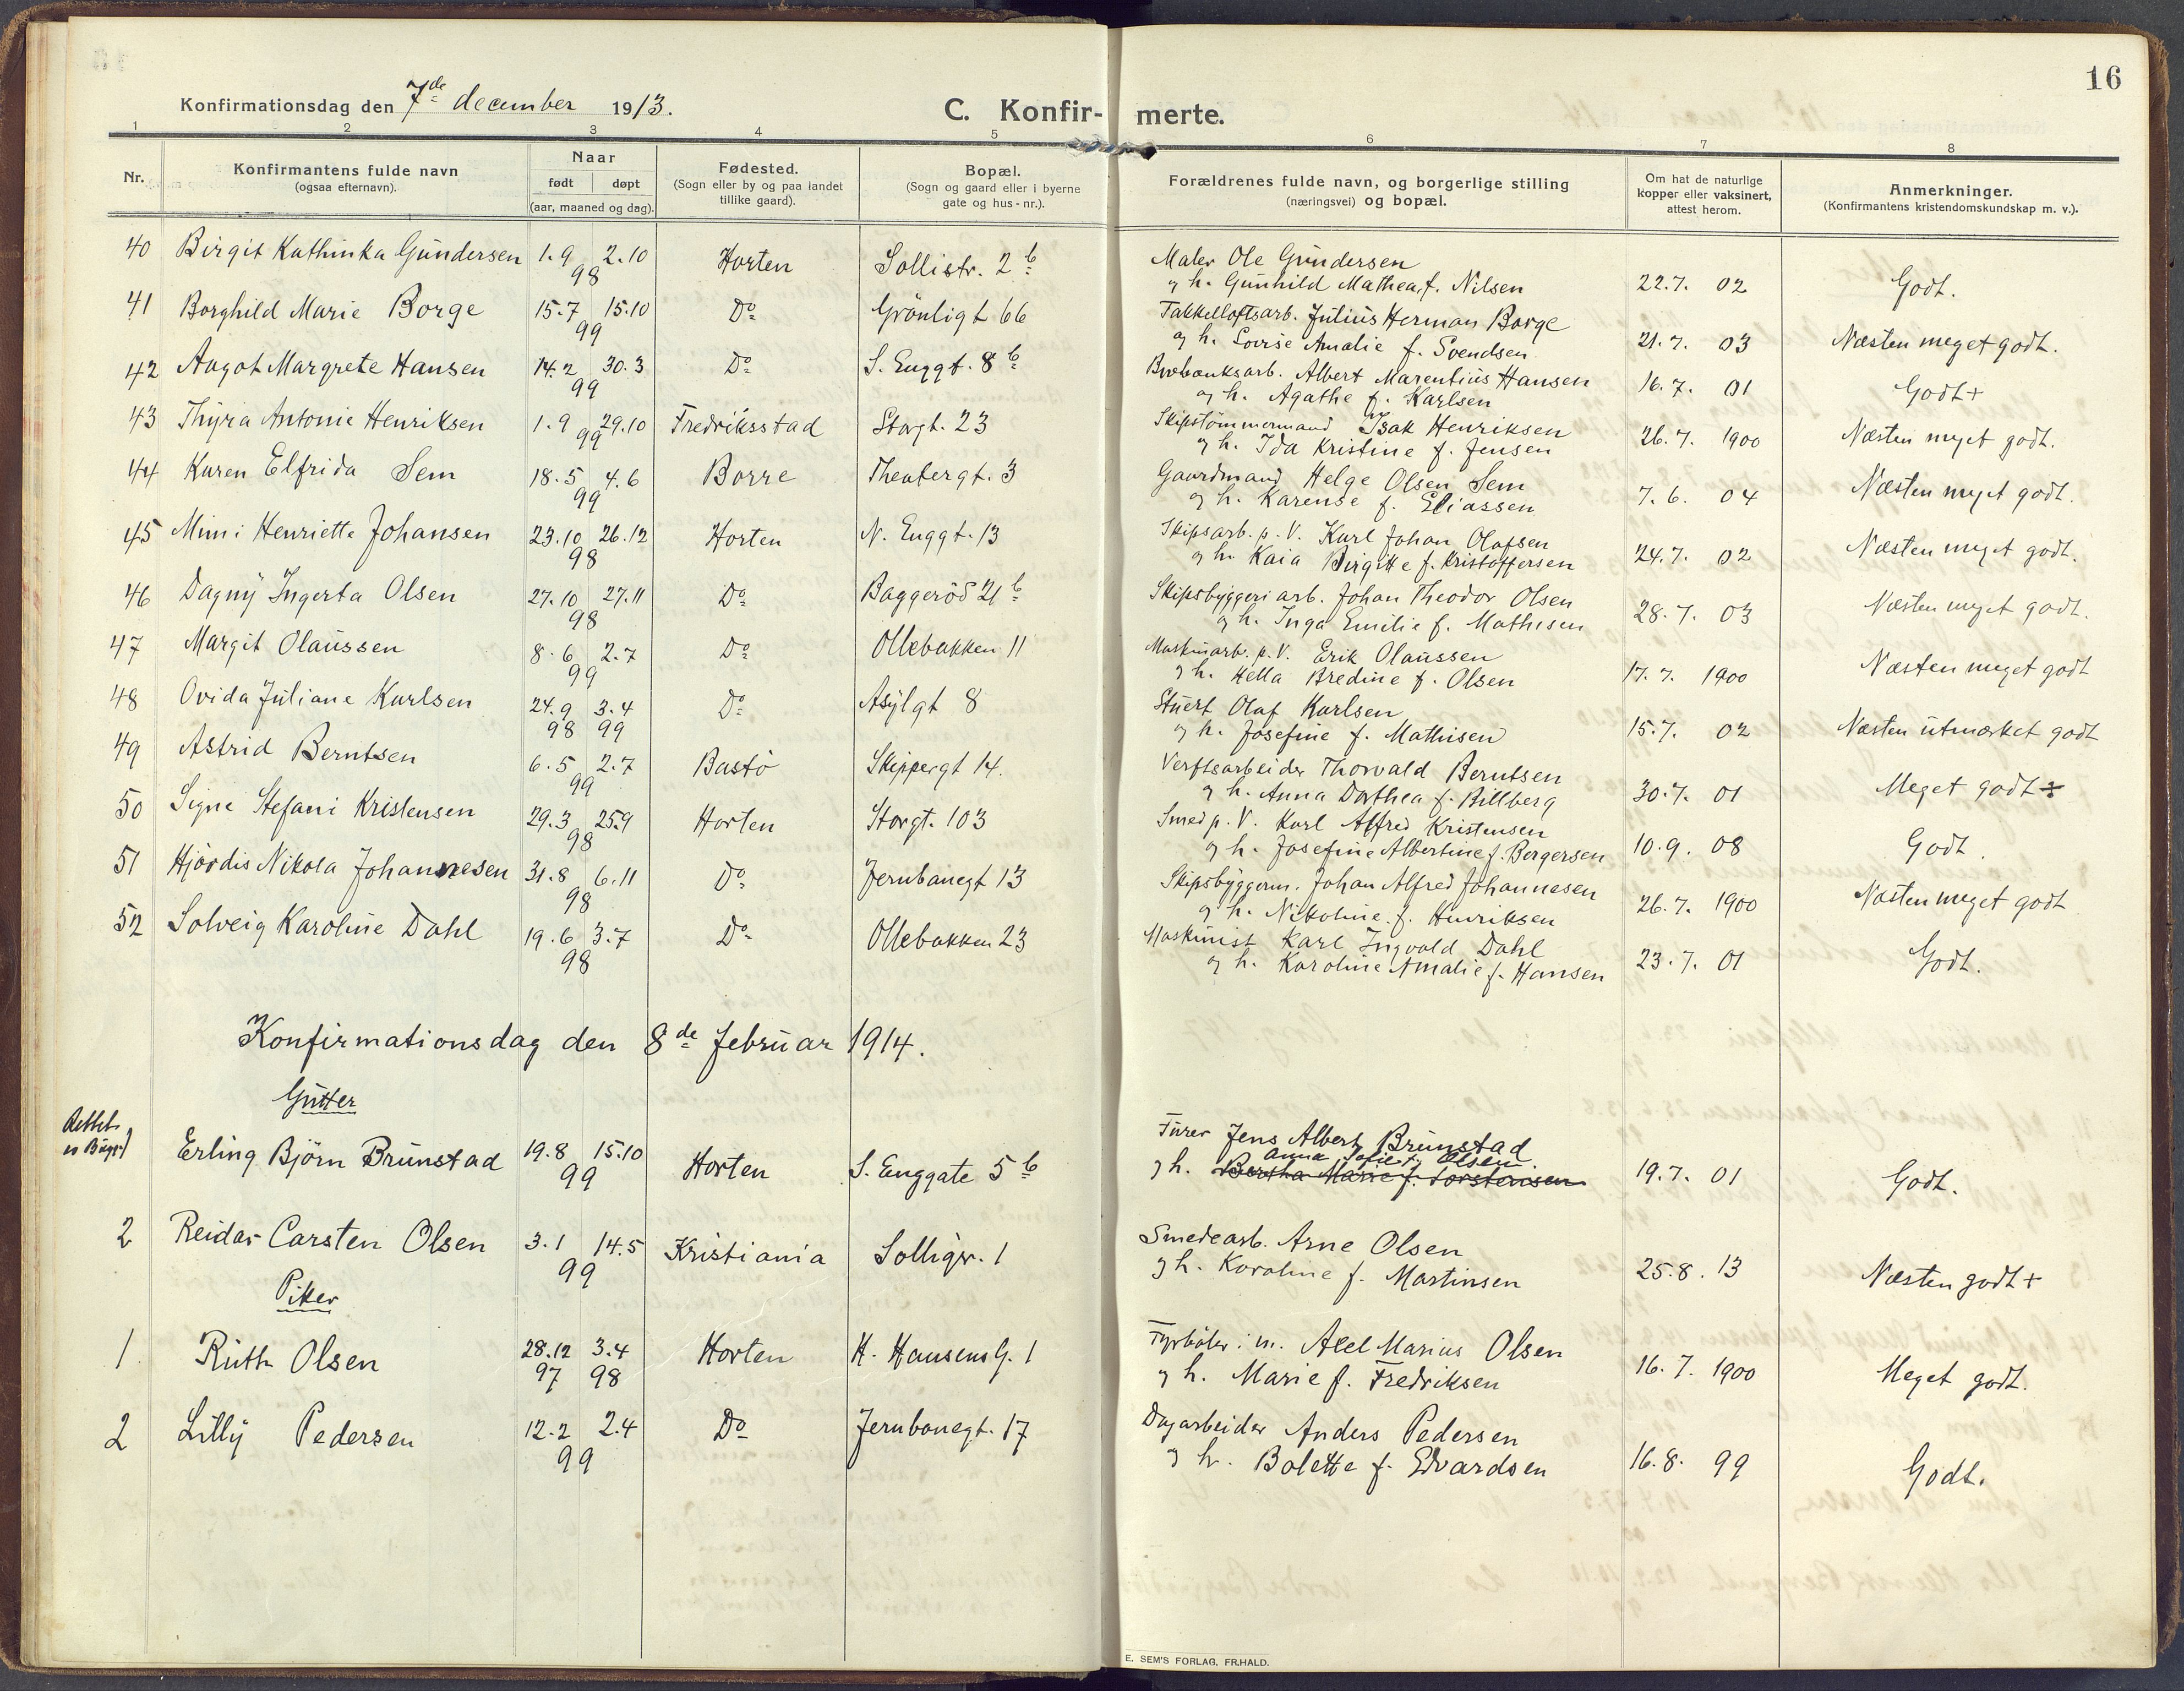 16
Konfirmationsdag den 7de december 1913.
C. Konfir- merte.
1 2 3 4 5 6 7 8
Nr.
Konfirmantens fulde navn
(ogsaa efternavn).
Naar
født døpt
(aar, maaned og dag).
Fødested.
(Sogn eller by og paa landet
tillike gaard).
Bopæl.
(Sogn og gaard eller i byerne
gate og hus-nr.).
Forældrenes fulde navn, og borgerlige stilling
(næringsvei) og bopæl.
Om hat de naturlige
kopper eller vaksinert,
attest herom.
Anmerkninger.
(Konfirmantens kristendomskundskap m. v.).
40 Birgit Kathinka Gundersen 1.9 2.10 98 Horten Sollistr. 2b Maler Ole Gundersen
og h. Gunhild Mathea f. Nilsen 22.7. 02 Godt.
41 Borghild Marie Borge 15.7 15.10 99 Do Grönligt 66 Takkelloftsarb. Julius Herman Borge
og h. Lovise Amalie f. Svendsen 21.7. 03 Næsten meget godt.
42 Aagot Margrete Hansen 14.2 30.3 99 Do S. Enggt. 8b Albert Marentius Hansen
og h. Agathe f. Karlsen 16.7. 01 Godt+
43 Thyra Antonie Henriksen 1.9 29.10 99 Fredriksstad Storgt. 23 Skipstømmermand Isak Henriksen
og h. Ida Kristine f. Jensen 26.7. 1900 Næsten meget godt.
44 Karen Elfrida Sem 18.5 4.6 99 Borre Theatergt. 3 Gaardmand Helge Olsen Sem
og h. Karense f. Eliassen 7.6. 04 Næsten meget godt.
45 Mimi Henriette Johansen 23.10 26.12 98 Horten N. Enggt. 13 Skipsarb. p. V. Karl Johan Olafsen
og h. Kaia Birgitte f. Kristoffersen 24.7. 02 Næsten meget godt.
46 Dagny Ingerta Olsen 27.10 27.11 98 Do Baggeröd 21b Skipsbyggeriarb. Johan Theodor Olsen
og h. Inga Emilie f. Mathisen 28.7. 03 Næsten meget godt.
47 Margit Olaussen 8.6 2.7 99 Do Ollebakken 11 Maskinarb. p. V. Erik Olaussen
og h. Hella Bredine f. Olsen 17.7. 1900 Næsten meget godt
48 Ovida Juliane Karlsen 24.9 3.4 98 99 Do Asylgt 8 Stuert Olaf Karlsen
og h. Josefine f. Mathisen 15.7. 02 Næsten utmærket godt
49 Astrid Berntsen 6.5 2.7 99 Bastö Skippergt 14. Verftsarbeider Thorvald Berntsen
og h. Anna Dorthea f. Billberg 30.7. 01 Meget godt÷
50 Signe Stefani Kristensen 29.3 25.9 98 Horten Storgt. 103 Smed p. V. Karl Alfred Kristensen
og h. Josefine Albertine f. Bergersen 10.9. 08 Godt.
51 Hjördis Nikola Johannesen 31.8 6.11 98 Do Jernbanegt 13 Skipsbyggerm. Johan Alfred Johannesen
og h. Nikoline f. Henriksen 26.7. 1900 Næsten meget godt
52 Solveig Karoline Dahl 19.6 3.7 98 Do Ollebakken 23 Maskinist Karl Ingvald Dahl
og h. Karoline Amalie f. Hansen 23.7. 01 Godt.
Konfirmationsdag den 8de februar 1914.
Gutter
Erling Björn Brunstad 19.8 15.10 99 Horten S. Enggate 5b Furer Jens Albert Brunstad
Anna Sofie f. Olsen
og h. Bertha Marie f. Torstensen 19.7. 01 Godt.
2 Reidar Carsten Olsen 3.1 14.5 99 Kristiania Solligr. 1 Smedearb. Arne Olsen
og h. Karoline f. Martinsen 25.8. 13 Næsten godt+
Piker
1 Ruth Olsen 28.12 3.4 97 98 Horten H. Hansens G. 1 Fyrböter i m. Axel Marius Olsen
og h. Marie f. Fredriksen 16.7. 1900 Meget godt.
2 Lilly Pedersen 12.2 2.4 99 Do Jernbanegt. 17 Dagarbeider Anders Pedersen
og h. Bolette f. Edvardsen 16.8. 99 Godt.
E. SEM'S FORLAG, FR.HALD.